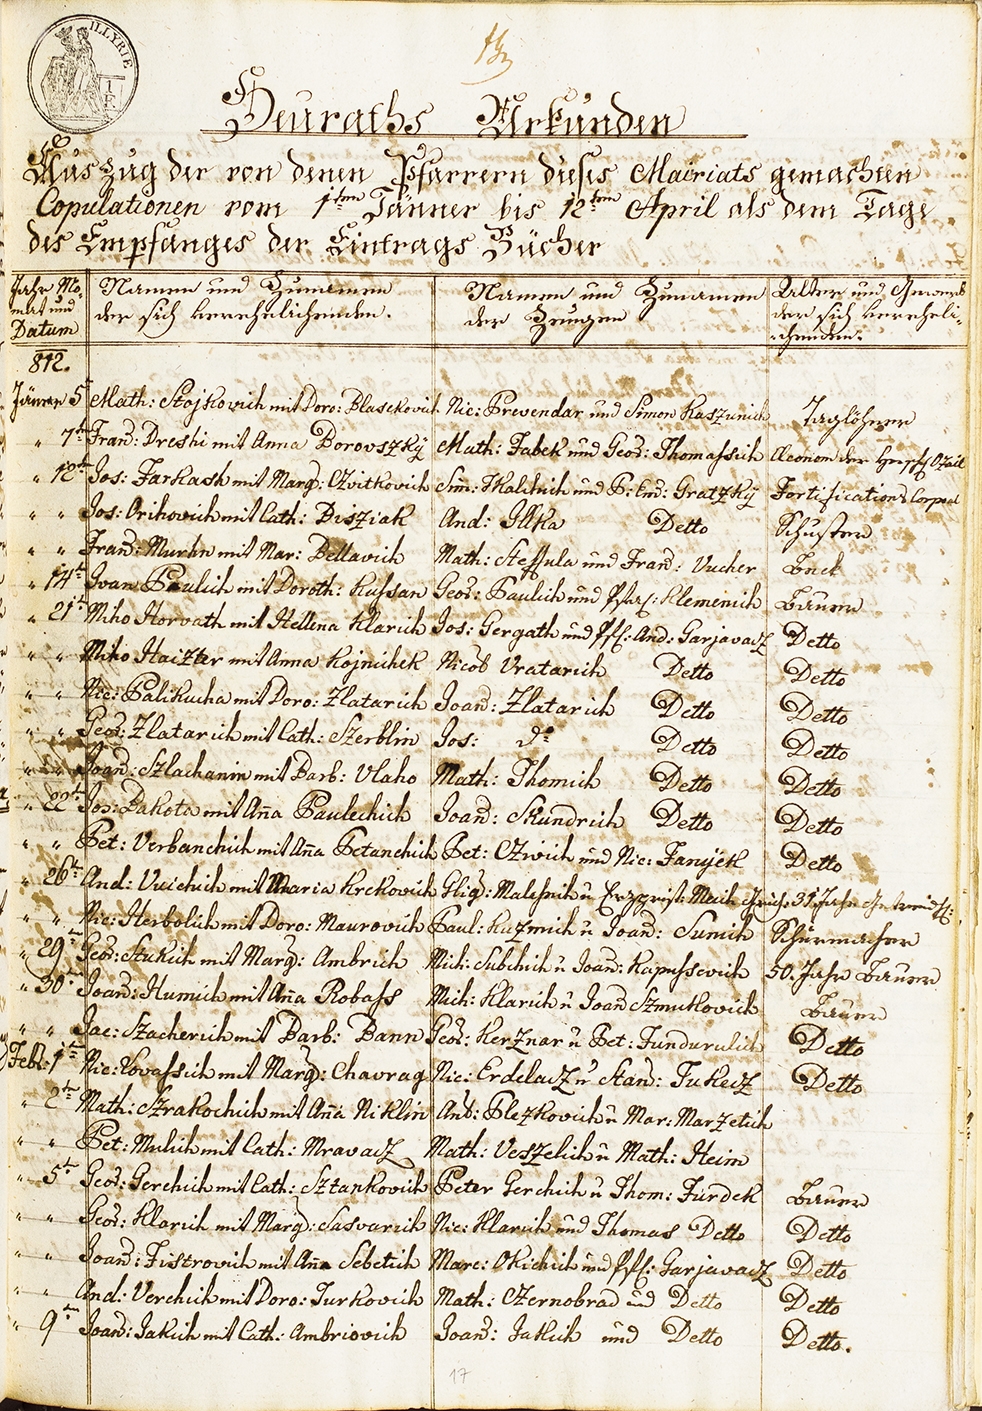 ILLYRIE
1 F.
Heuraths Urkunden
Auszug der von denen Pfarrern dieses Mairiats gemachten
Copulationen vom 1ten Jänner bis 12ten April als dem Tage
des Empfanges der Eintrags Bücher
Jahr Mo, Namen und Zunamen Namen und Zunamen Alter und Gewerb
nat und der sich verehelichenden. der Zeugen der sich vereheli-
Datum chenden.
812.
Jänner 5t Math: Stojkovich mit Doro: Blasekovich Nic: Prevendar und Simon Kaszunich Taglöhner
" 7t Franc: Dreshi mit Anna Borovszky Math: Fabek und Geor: Thomassich Oeconom der
" 12t Jos: Farkash mit Marg: Czvitkovich Sim: Skalitnich und P: Em: Gratzky Fortifications Corporal
" " Jos: Orihovich mit Cath: Disziak And: Illka Detto Schuster
" " Franc: Murhn mit Mar: Bellavich Math: Steffula und Franc: Vucher Beck
" 14t Ivan Paulich mit Doroth: Kussan Geor: Paulich und Pfar: Klemenich Bauern
" 21t Miho Horvath mit Hellena Klarich Jos: Gergath und Pf: And: Garjavacz Detto
" " Miko Haizter mit Anna Kojnichek Nicob Vratarich Detto Detto
" " Nic: Palikucha mit Doro: Zlatarich Joan: Zlatarich Detto Detto
" " Geor: Zlatarich mit Cath: Szerblin Jos: do Detto Detto
" " Joan: Szlachanin mit Barb: Vlaho Math: Thomich Detto Detto
" 22t Jos: Dakota mit Aña Paulechich Joan: Skundrich Detto Detto
" " Pet: Verbanchich mit Aña Petanchich Pet: Czvich und Nic: Fanyek Detto
" 26t And: Vuichich mit Maria Krekovich Glig: Malesnich u 31 Jahr
" " Nic: Herbolich mit Doro: Maurovich Paul: Kuzmich u Joan: Sunich Schumacher
" 29t Geor: Stukich mit Marg: Ambrich Mich: Subchich u Joan: Kapussevich 50. Jahr Bauern
" 30t Joan: Humich mit Aña Robass Mich: Klarich u Joan Szmutkovich Bauer
" " Jac: Szacherich mit Barb: Bann Geor: Kerznar u Pet: Fundurulich Detto
Feb: 1t Nic: Kovassich mit Marg: Chavrag Nic: Erdelacz u Stan: Tukecz Detto
" 2t Math: Strakochich mit Aña Niklin Ant: Plezkovich u Mar: Marzetich
" " Pet: Mulich mit Cath: Mravacz Math: Veszelich u Math: Heim
" 5t Geor: Gerchich mit Cath: Sztankovich Peter Gerchich u Thom: Furdek Bauer
" " Geor: Klarich mit Marg: Sasvarich Nic: Klarich und Thomas Detto Detto
" " Joan: Fistrovich mit Aña Sebetich Marc: Okichich und Pf: Garjavacz Detto
" " And: Verchich mit Doro: Turkovich Math: Czernobrad und Detto Detto
" 9t Joan: Jakich mit Cath: Ambriovich Joan: Jatich und Detto Detto.
17